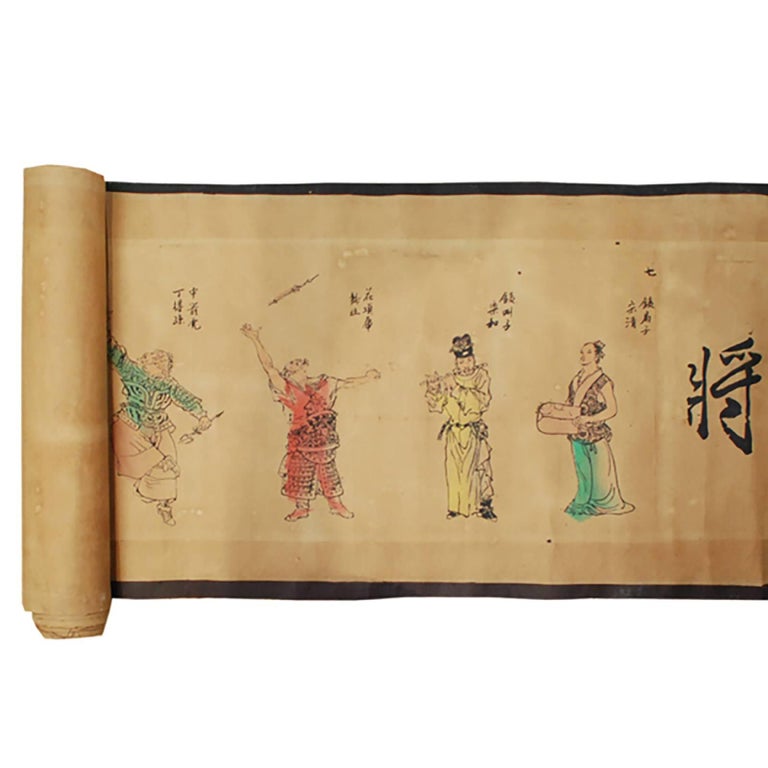 將
七
鉄扇子
宋清
鉄叫子
樂和
花項虎
龔旺
中箭虎
丁得孫